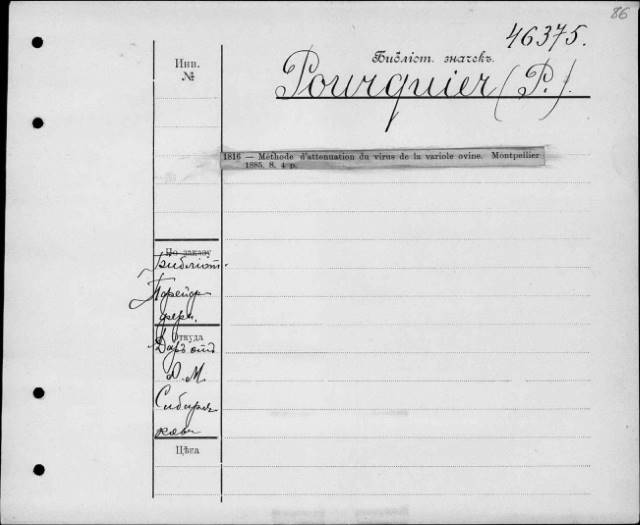 86
46375.
Библіот. значекъ.
Инв.
№
Pourquier (P.).
1816 — Méthode d'attenuation du virus de la variole ovine. Montpellier
1885. 8. 4 p.
По заказу
Библіот.
Откуда
Даръ отъ
А. М.
Сибиря
кова
Цѣна